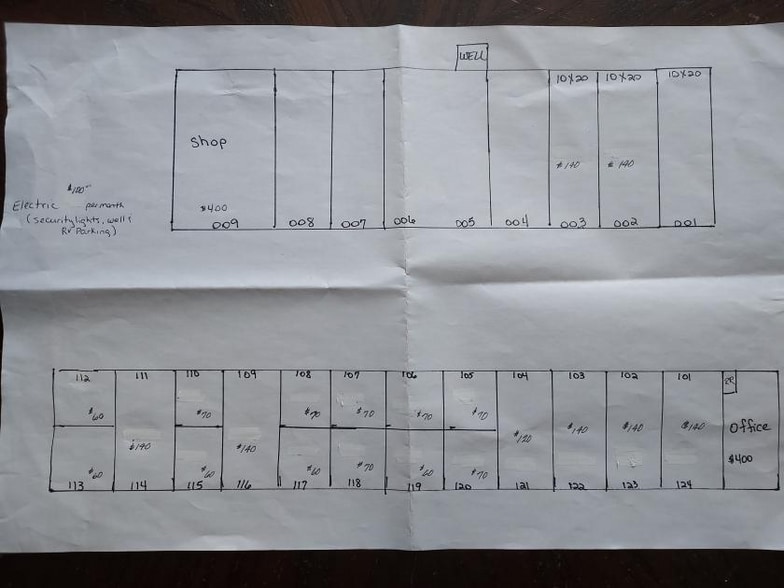 WELL
10X20 10X20 10X20
Shop
$140 $140
$100
Electric per month
(security lights, well &
RV Parking)
$400
009 008 007 006 005 004 003 002 001
112 111 110 109 108 107 106 105 104 103 102 101
BR
$60 $70 $70 $70 $70 $70
$140 $140 $120 $140 $140 $140
Office
$400
$60 $60 $60 $70 $60 $70
113 114 115 116 117 118 119 120 121 122 123 124